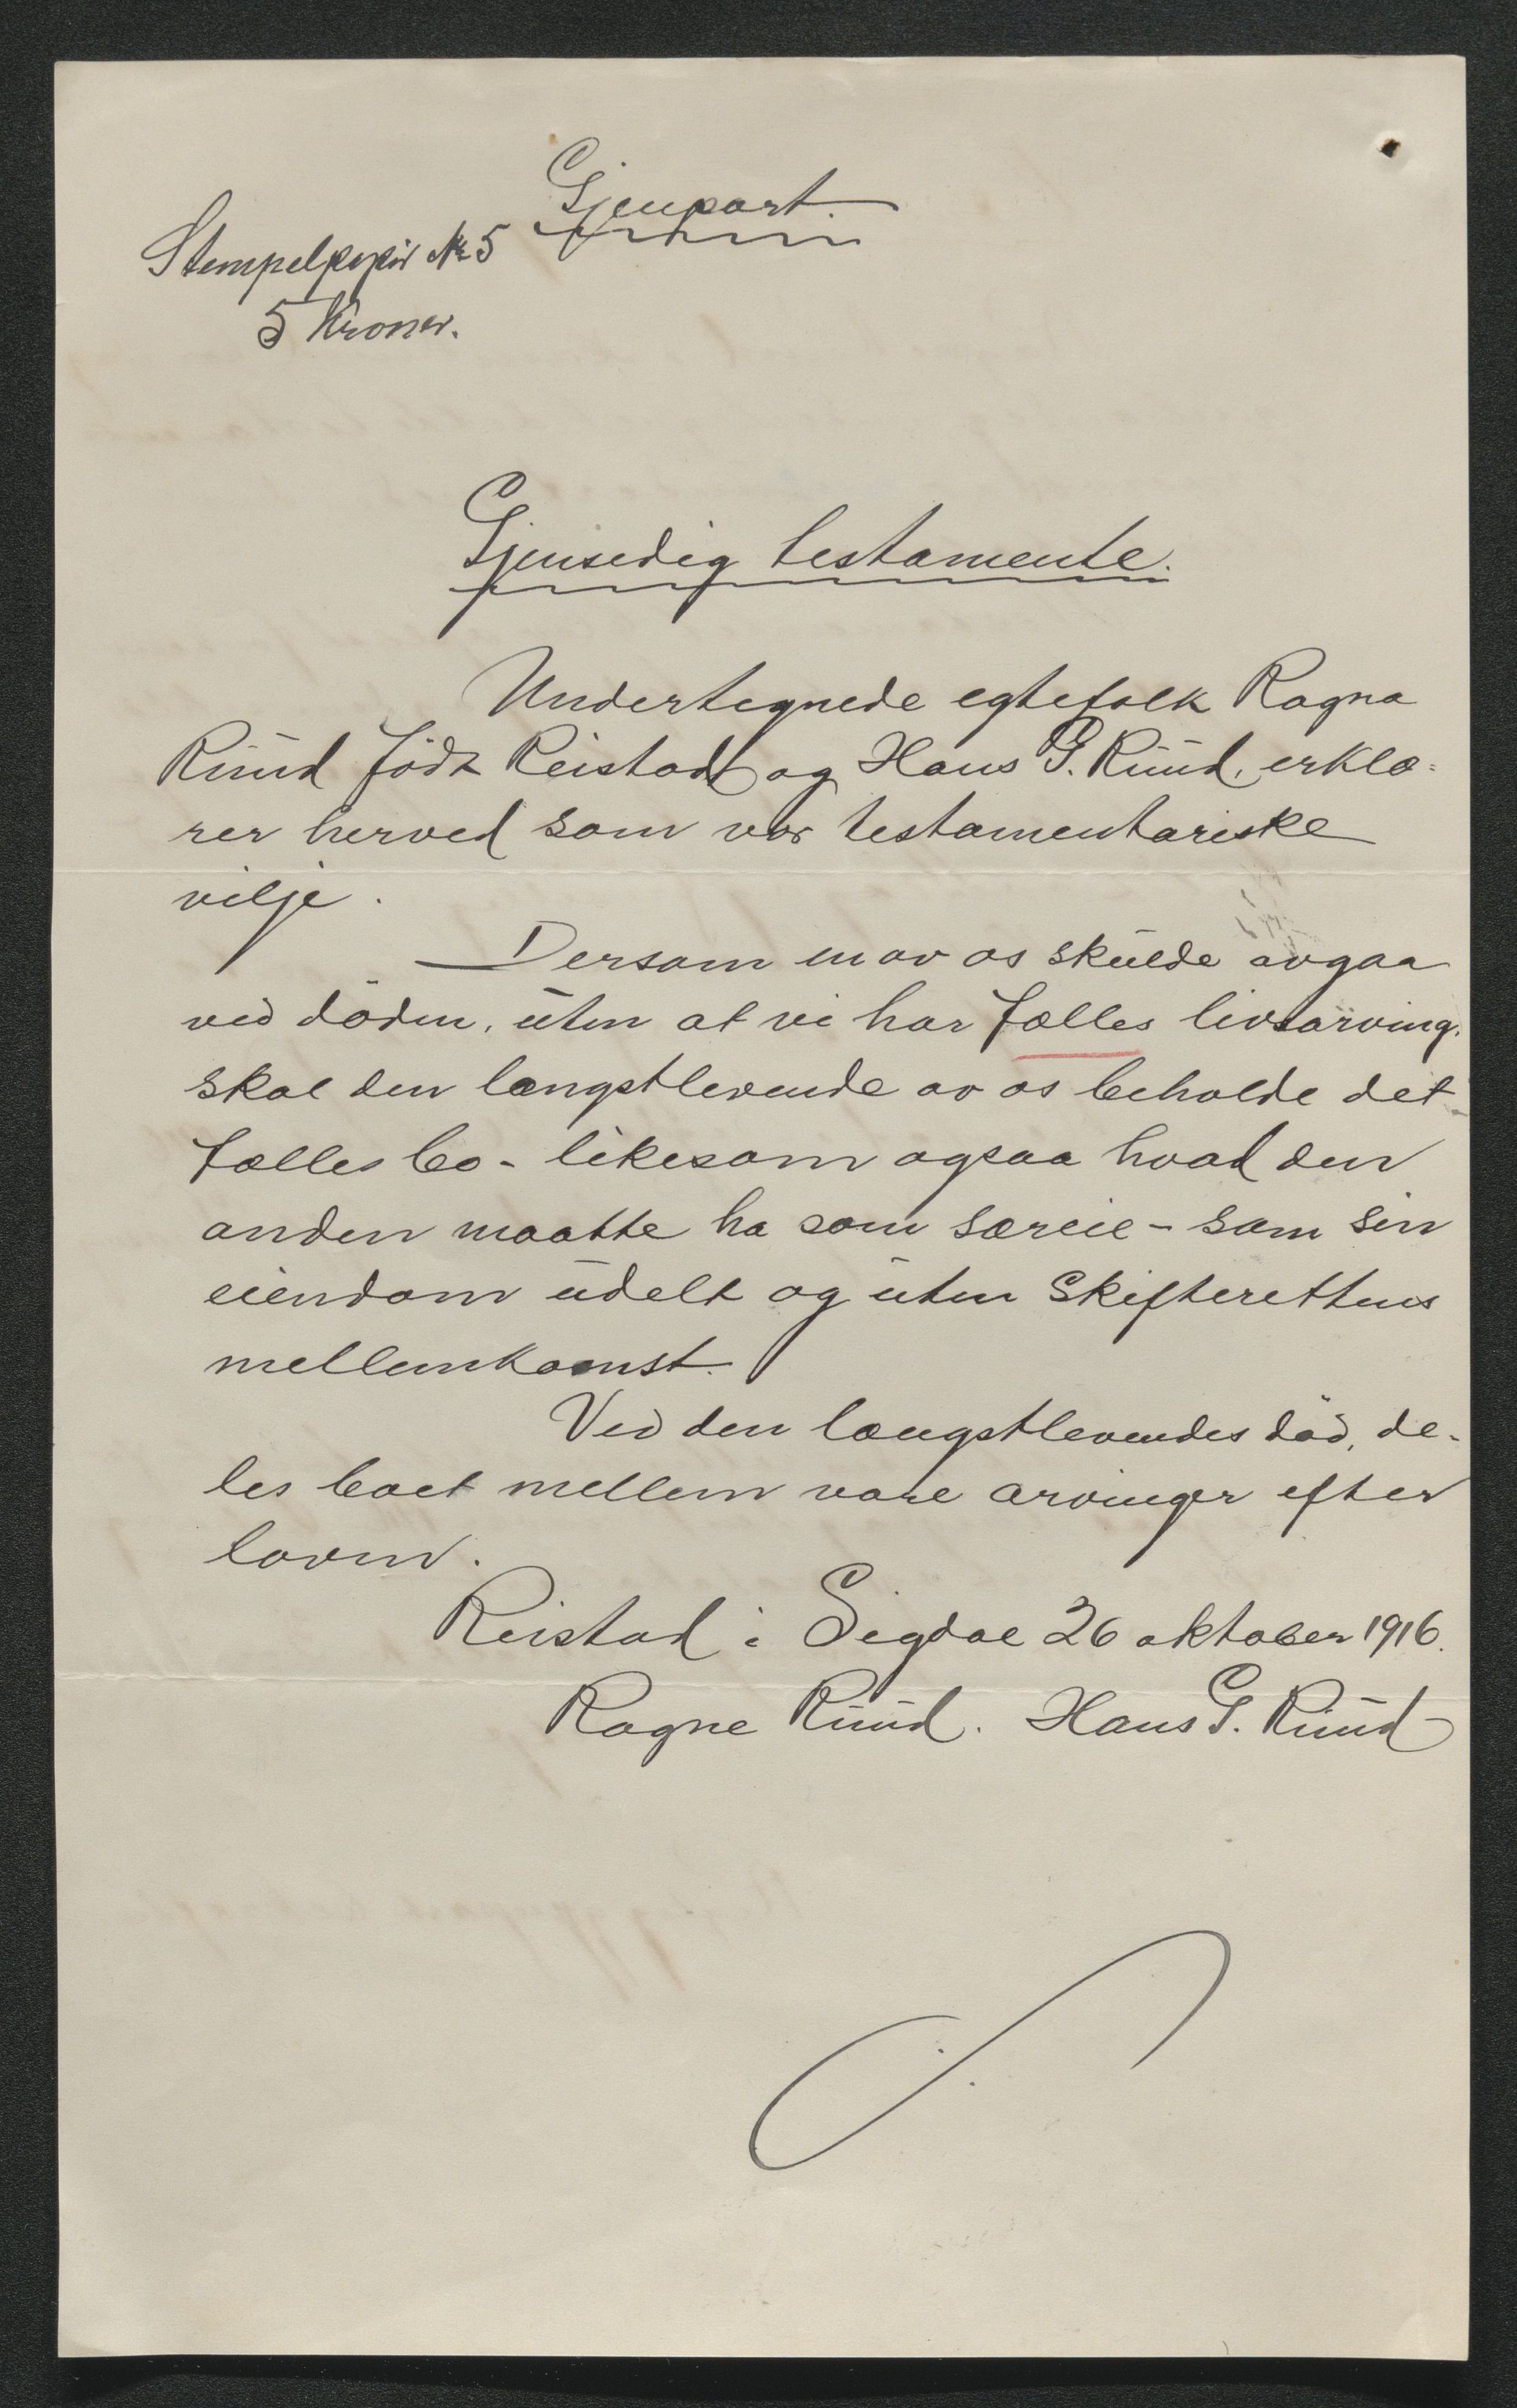 Gjenpart.
Stempelpapir № 5
5 Kroner.
Gjensidig testamente.
Undertegnede egtefolk Ragna
Ruud født Reistad og Hans G. Ruud, erklæ-
rer herved som vor testamentariske
vilje.
Dersom en av os skulde avgaa
ved döden, uten at vi har fælles livsarving.
skal den længstlevende av os beholde det
fælles bo - likesom ogsaa hvad den
anden maatte ha som særeie - som sin
eiendom udelt og uten Skifterettens
mellemkomst.
Ved den længstlevendes död, de-
les boet mellem vore arvinger efter
loven.
Reistad i Sigdal 26 oktober 1916.
Ragne Ruud. Hans G. Ruud